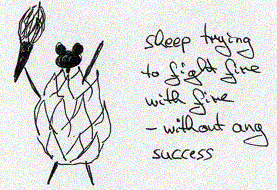 sheep trying
to fight fire
with fire
- without any
success